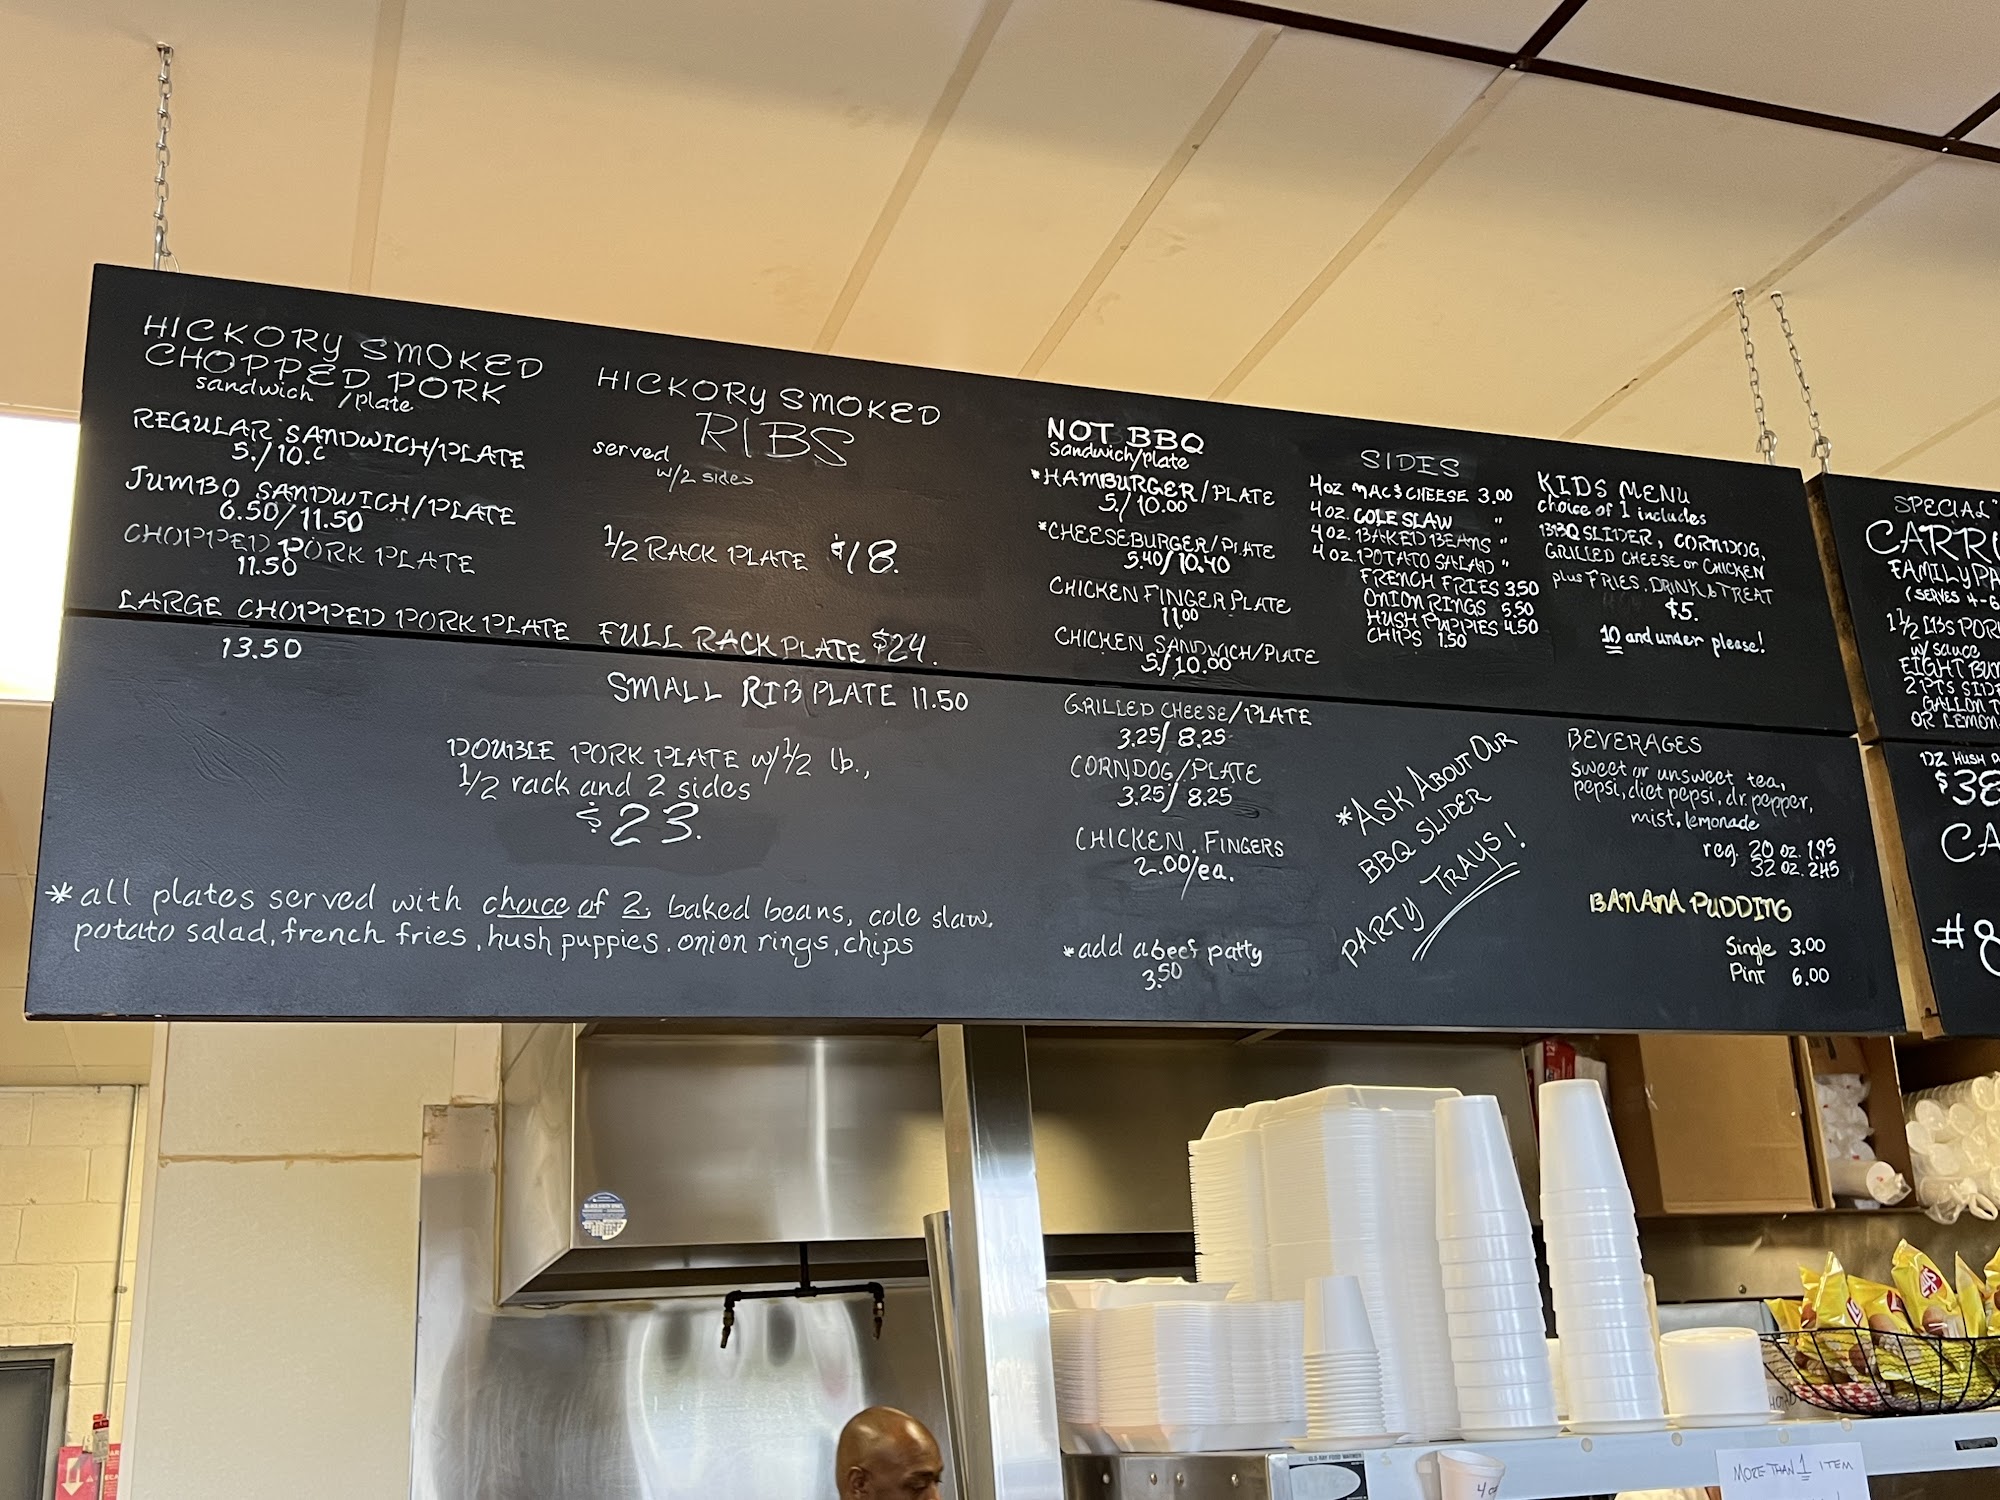 HICKORY SMOKED
CHOPPED PORK
sandwich /plate
REGULAR SANDWICH/PLATE
5./10.
JUMBO SANDWICH/PLATE
6.50/11.50
CHOPPED PORK PLATE
11.50
LARGE CHOPPED PORK PLATE
13.50
HICKORY SMOKED
RIBS
served
w/2 sides
1/2 RACK PLATE $18.
FULL RACK PLATE $24.
SMALL RIB PLATE 11.50
DOUBLE PORK PLATE w/1/2 lb.,
1/2 rack and 2 sides
$23.
*all plates served with choice of 2: baked beans, cole slaw,
potato salad, french fries, hush puppies, onion rings, chips
NOT BBQ
Sandwich/plate
*HAMBURGER/PLATE
5./10.00
*CHEESEBURGER/PLATE
5.40/10.40
CHICKEN FINGER PLATE
11.00
CHICKEN SANDWICH/PLATE
5./10.00
GRILLED CHEESE/PLATE
3.25/8.25
CORNDOG/PLATE
3.25/8.25
CHICKEN FINGERS
2.00/ea.
*add a beef patty
3.50
SIDES
4oz MAC$CHEESE 3.00
4oz. COLE SLAW "
4oz. BAKED BEANS "
4oz. POTATO SALAD "
FRENCH FRIES 3.50
ONION RINGS 5.50
HUSH PUPPIES 4.50
CHIPS 1.50
*ASK ABOUT OUR
BBQ SLIDER
PARTY TRAYS!
KIDS MENU
choice of 1 includes
BBQ SLIDER, CORNDOG,
GRILLED CHEESE or CHICKEN
plus FRIES, DRINK & TREAT
$5.
10 and under please!
BEVERAGES
sweet or unsweet tea,
pepsi, diet pepsi, dr. pepper,
mist, lemonade
reg. 20 oz. 1.95
32 oz. 2.45
BANANA PUDDING
Single 3.00
Pint 6.00
SPECIAL
CARR
FAMILY PA
(SERVES 4-6
1 1/2 LBS POR
w/ sauce
EIGHT BU
2 PTS SID
GALLON T
OR LEMON
DZ HUSH
$38
CA
#8
MORE THAN 1 ITEM